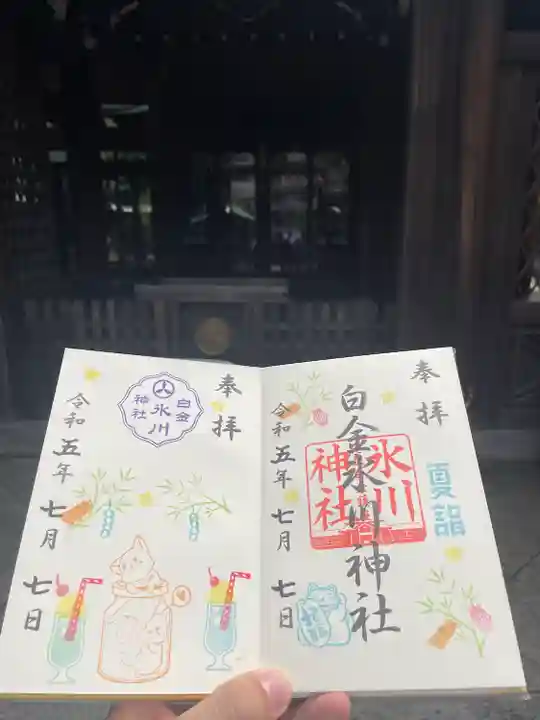 奉拝
白金氷川神社
氷川神社
夏詣
令和五年 七月 七日
奉拝
白金
氷川
神社
令和五年 七月 七日